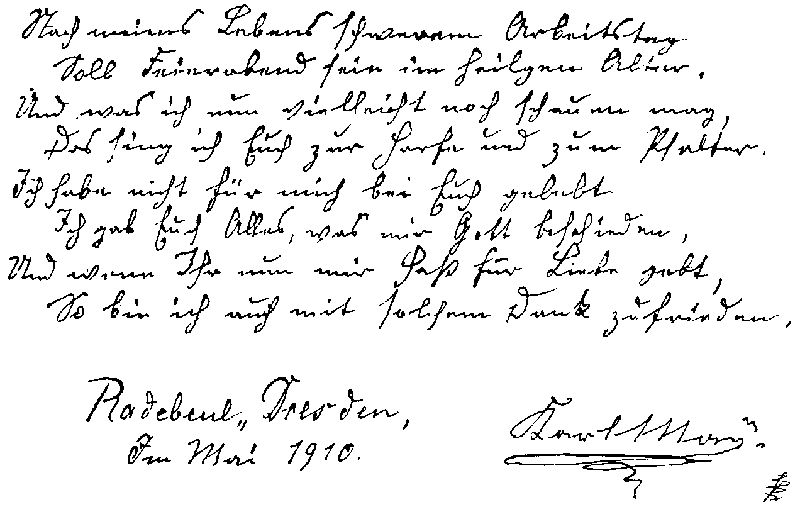 Nach meines Lebens schwerem Arbeitstag
Soll Feierabend sein im heilgen Alter.
Und was ich nun vielleicht noch schauen mag,
Das sing ich Euch zur Harfe und zum Psalter.
Ich habe nicht für mich bei Euch gelebt
Ich gab Euch Alles, was mir Gott beschieden,
Und wenn Ihr nun mir Haß für Liebe gebt,
So bin ich auch mit solchem Dank zufrieden.
Radebeul-Dresden,
Im Mai 1910.
Karl May.